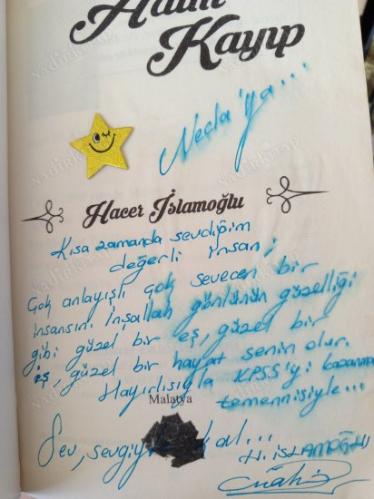 Kayıp
Necla'ya...
Hacer İslamoğlu
Kısa zamanda sevdiğim
değerli insan;
Çok anlayışlı çok sevecen bir
insansın. İnşallah gönlünün güzelliği
gibi güzel bir eş, güzel bir
iş, güzel bir hayat senin olur.
Hayırlısıyla KPSS'yi kazanma
temennisiyle...
Malatya
Sev, sevgiyle kal...
H. İSLAMOĞLU